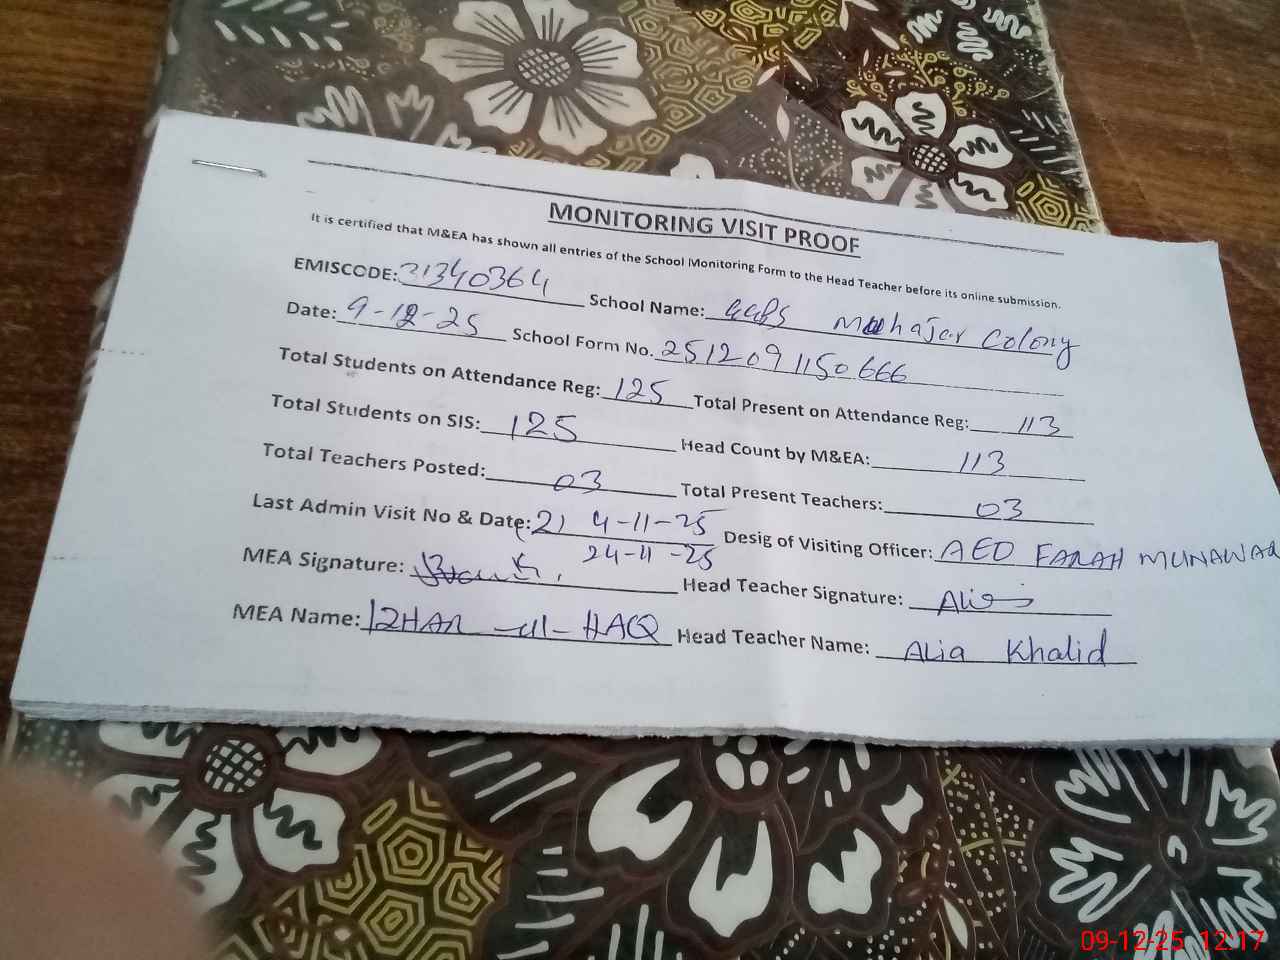 MONITORING VISIT PROOF
It is certified that M&EA has shown all entries of the School Monitoring Form to the Head Teacher before its online submission.
EMISCODE: 31340364 School Name: GGPS Muhajar Colony
Date: 9-12-25 School Form No. 2512091150666
Total Students on Attendance Reg: 125 Total Present on Attendance Reg: 113
Total Students on SIS: 125 Head Count by M&EA: 113
Total Teachers Posted: 03 Total Present Teachers: 03
Last Admin Visit No & Date: 2) 4-11-25 Desig of Visiting Officer: AEO FARAH MUNAWAR
24-11-25
MEA Signature: Head Teacher Signature: Alia
MEA Name: IZHAR-ul-HAQ Head Teacher Name: Alia Khalid
09-12-25 12:17